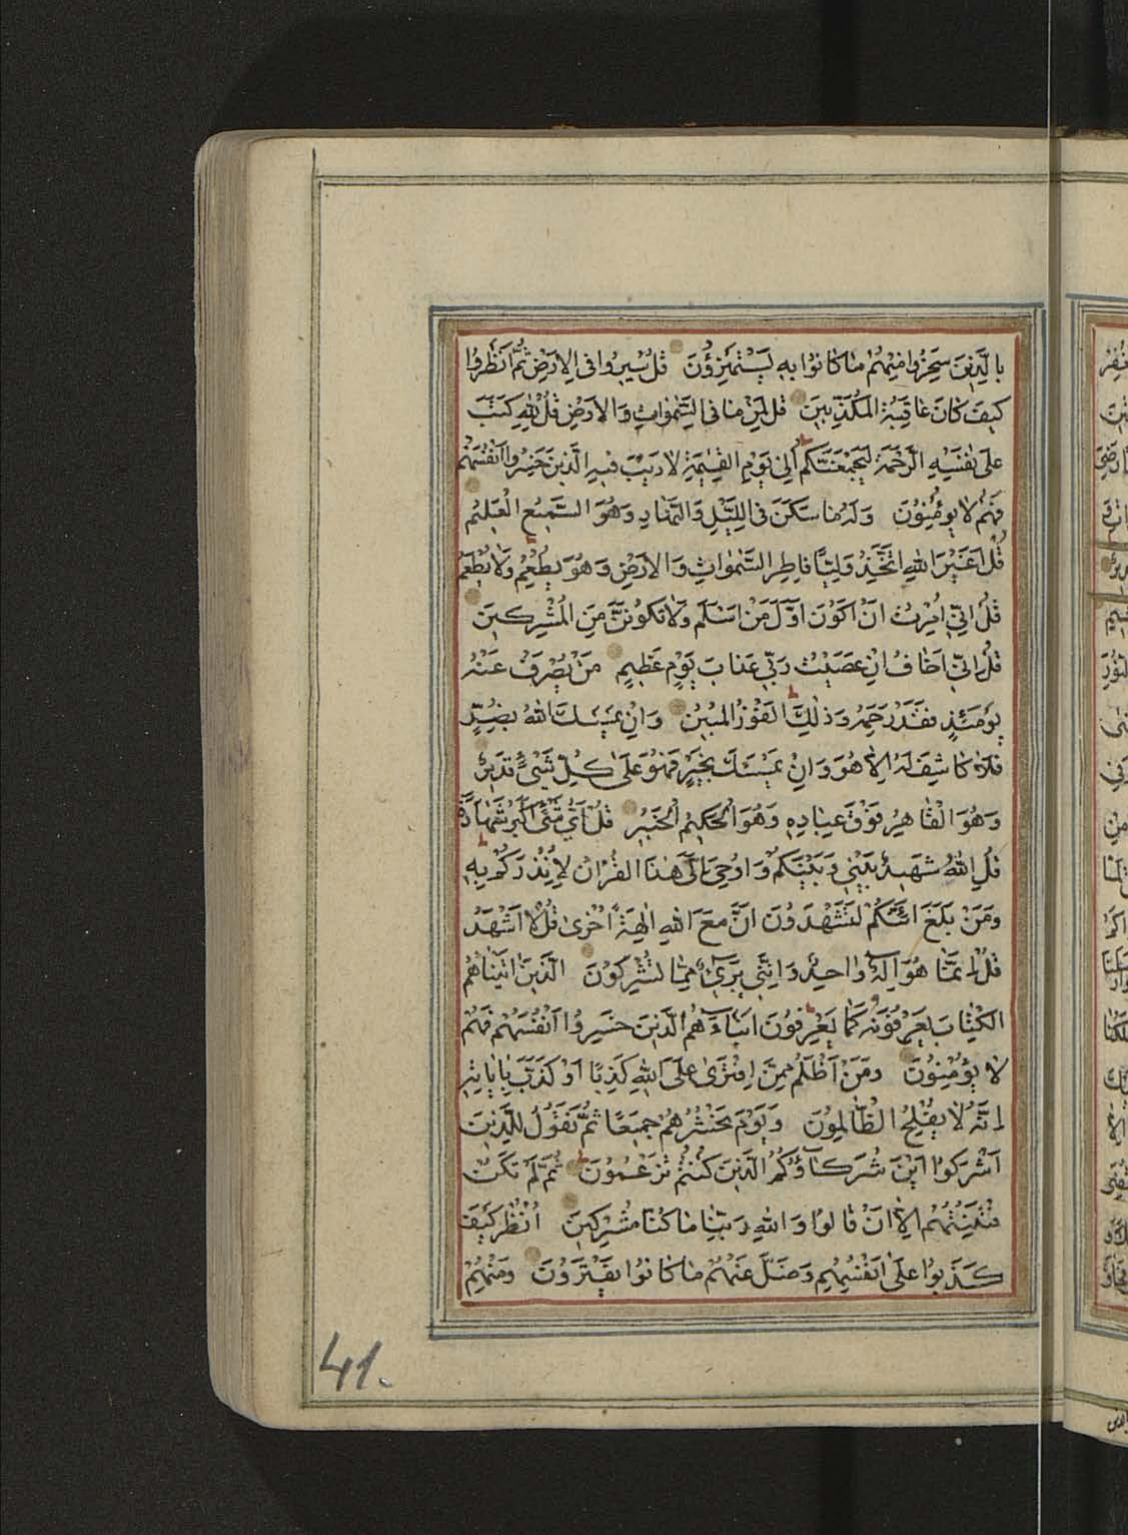 بِالَّذِينَ سَخِرُوا مِنْهُمْ مَا كَانُوا بِهِ يَسْتَهْزِؤُنَ قُلْ سِيرُوا فِي الْاَرْضِ ثُمَّ انْظُرُوا
كَيْفَ كَانَ عَاقِبَةُ الْمُكَذِّبِينَ قُلْ لِمَنْ مَا فِي السَّمٰوَاتِ وَالْاَرْضِ قُلْ لِلّٰهِ كَتَبَ
عَلَى نَفْسِهِ الرَّحْمَةَ لَيَجْمَعَنَّكُمْ اِلَى يَوْمِ الْقِيٰمَةِ لَا رَيْبَ فِيهِ الَّذِينَ خَسِرُوا اَنْفُسَهُمْ
فَهُمْ لَا يُؤْمِنُونَ وَلَهُ مَا سَكَنَ فِي اللَّيْلِ وَالنَّهَارِ وَهُوَ السَّمِيعُ الْعَلِيمُ
قُلْ اَغَيْرَ اللّٰهِ اَتَّخِذُ وَلِيًّا فَاطِرِ السَّمٰوَاتِ وَالْاَرْضِ وَهُوَ يُطْعِمُ وَلَا يُطْعَمُ
قُلْ اِنِّي اُمِرْتُ اَنْ اَكُونَ اَوَّلَ مَنْ اَسْلَمَ وَلَا تَكُونَنَّ مِنَ الْمُشْرِكِينَ
قُلْ اِنِّي اَخَافُ اِنْ عَصَيْتُ رَبِّي عَذَابَ يَوْمٍ عَظِيمٍ مَنْ يُصْرَفْ عَنْهُ
يَوْمَئِذٍ فَقَدْ رَحِمَهُ وَذٰلِكَ الْفَوْزُ الْمُبِينُ وَاِنْ يَمْسَسْكَ اللّٰهُ بِضُرٍّ
فَلَا كَاشِفَ لَهُ اِلَّا هُوَ وَاِنْ يَمْسَسْكَ بِخَيْرٍ فَهُوَ عَلَى كُلِّ شَيْءٍ قَدِيرٌ
وَهُوَ الْقَاهِرُ فَوْقَ عِبَادِهِ وَهُوَ الْحَكِيمُ الْخَبِيرُ قُلْ اَيُّ شَيْءٍ اَكْبَرُ شَهَادَةً
قُلِ اللّٰهُ شَهِيدٌ بَيْنِي وَبَيْنَكُمْ وَاُوحِيَ اِلَيَّ هٰذَا الْقُرْاٰنُ لِاُنْذِرَكُمْ بِهِ
وَمَنْ بَلَغَ اَئِنَّكُمْ لَتَشْهَدُونَ اَنَّ مَعَ اللّٰهِ اٰلِهَةً اُخْرٰى قُلْ لَا اَشْهَدُ
قُلْ اِنَّمَا هُوَ اِلٰهٌ وَاحِدٌ وَاِنَّنِي بَرِيءٌ مِمَّا تُشْرِكُونَ الَّذِينَ اٰتَيْنَاهُمُ
الْكِتَابَ يَعْرِفُونَهُ كَمَا يَعْرِفُونَ اَبْنَاءَهُمُ الَّذِينَ خَسِرُوا اَنْفُسَهُمْ فَهُمْ
لَا يُؤْمِنُونَ وَمَنْ اَظْلَمُ مِمَّنِ افْتَرٰى عَلَى اللّٰهِ كَذِبًا اَوْ كَذَّبَ بِاٰيَاتِهِ
اِنَّهُ لَا يُفْلِحُ الظَّالِمُونَ وَيَوْمَ نَحْشُرُهُمْ جَمِيعًا ثُمَّ نَقُولُ لِلَّذِينَ
اَشْرَكُوا اَيْنَ شُرَكَاؤُكُمُ الَّذِينَ كُنْتُمْ تَزْعُمُونَ ثُمَّ لَمْ تَكُنْ
فِتْنَتُهُمْ اِلَّا اَنْ قَالُوا وَاللّٰهِ رَبِّنَا مَا كُنَّا مُشْرِكِينَ اُنْظُرْ كَيْفَ
كَذَبُوا عَلَى اَنْفُسِهِمْ وَضَلَّ عَنْهُمْ مَا كَانُوا يَفْتَرُونَ وَمِنْهُمْ
41.